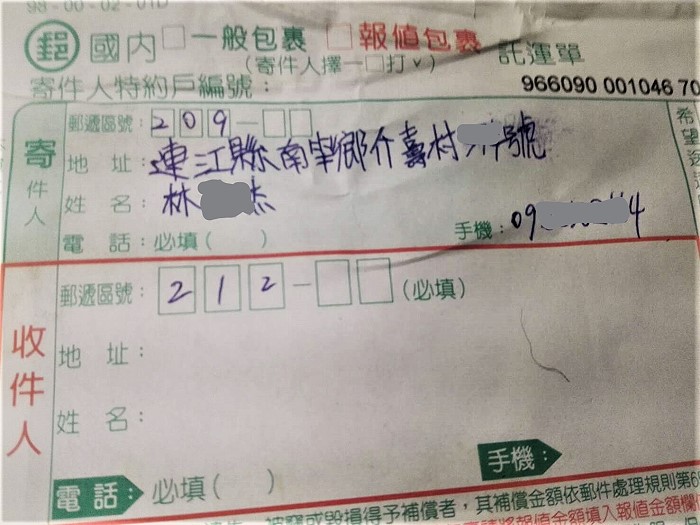 98-00-02-01D
郵 國內 □一般包裹 □報值包裹 託運單
(寄件人擇一□打ˇ)
寄件人特約戶編號： 966090 001046 70
寄件人
郵遞區號：209-□□
地 址：連江縣南竿鄉介壽村 號
姓 名：林 杰
電 話：必填( ) 手機：09 4
希望
收件人
郵遞區號：212-□□(必填)
地 址：
姓 名：
電 話：必填( ) 手機：
被竊或毀損得予補償者，其補償金額依郵件處理規則第6
報值金額填入報值金額欄